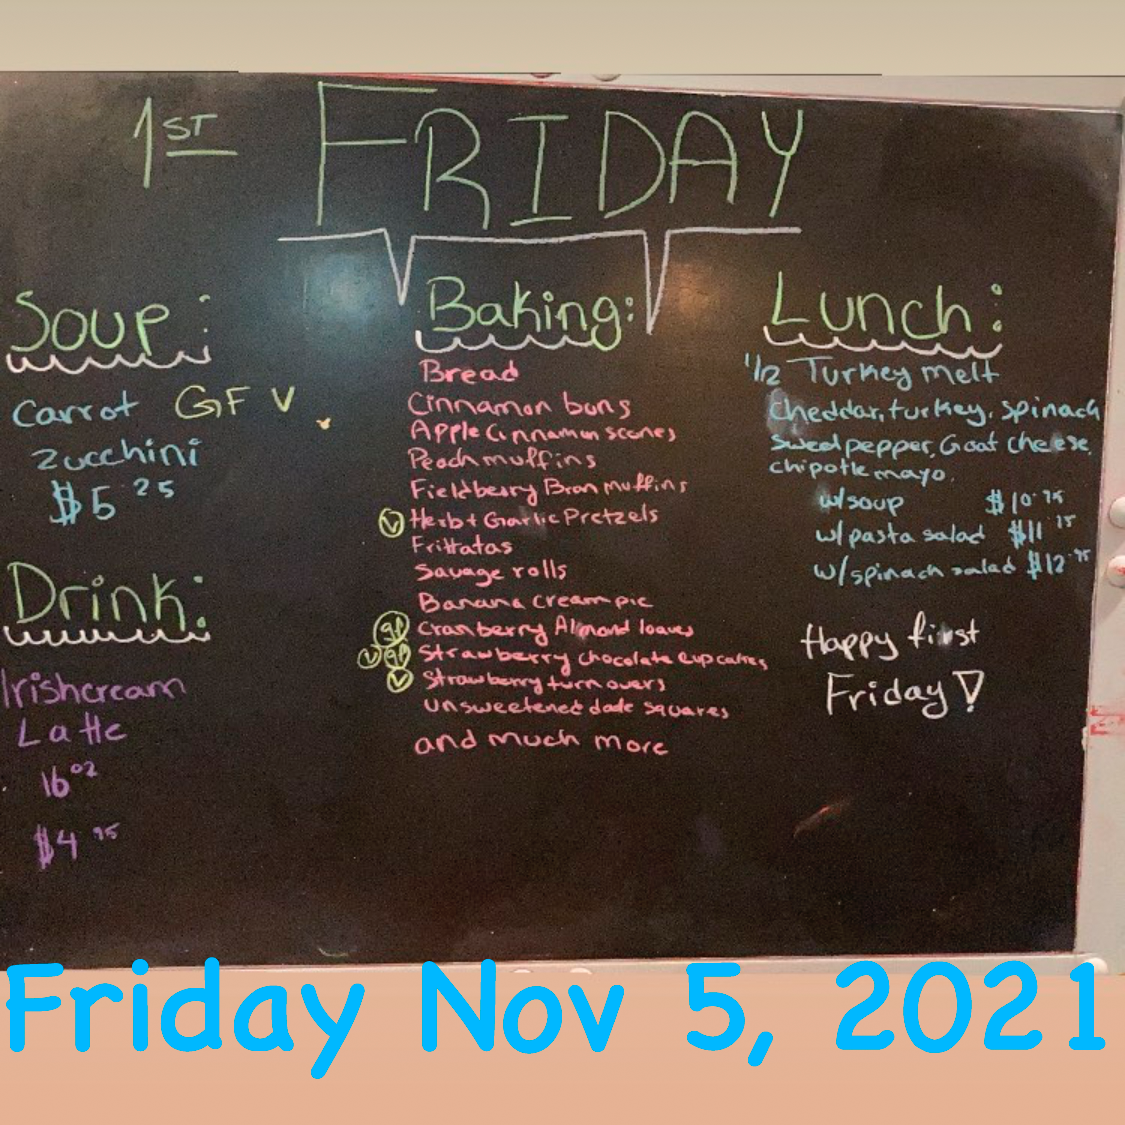 1ST FRIDAY
Soup:
Carrot GF V
Zucchini
$5.25
Drink:
Irishcream
Latte
16oz
$4.95
Baking:
Bread
Cinnamon buns
Apple Cinnamon scones
Peach muffins
Fieldberry Bran muffins
V Herb + Garlic Pretzels
Frittatas
Sausage rolls
Banana cream pie
gf Cranberry Almond loaves
V gf Strawberry chocolate cupcakes
V Strawberry turnovers
unsweetened date squares
and much more
Lunch:
1/2 Turkey melt
Cheddar, turkey, spinach
sweet pepper, Goat cheese,
chipotle mayo.
w/soup $10.75
w/pasta salad $11
w/spinach salad $12.95
Happy first
Friday!
Friday Nov 5, 2021